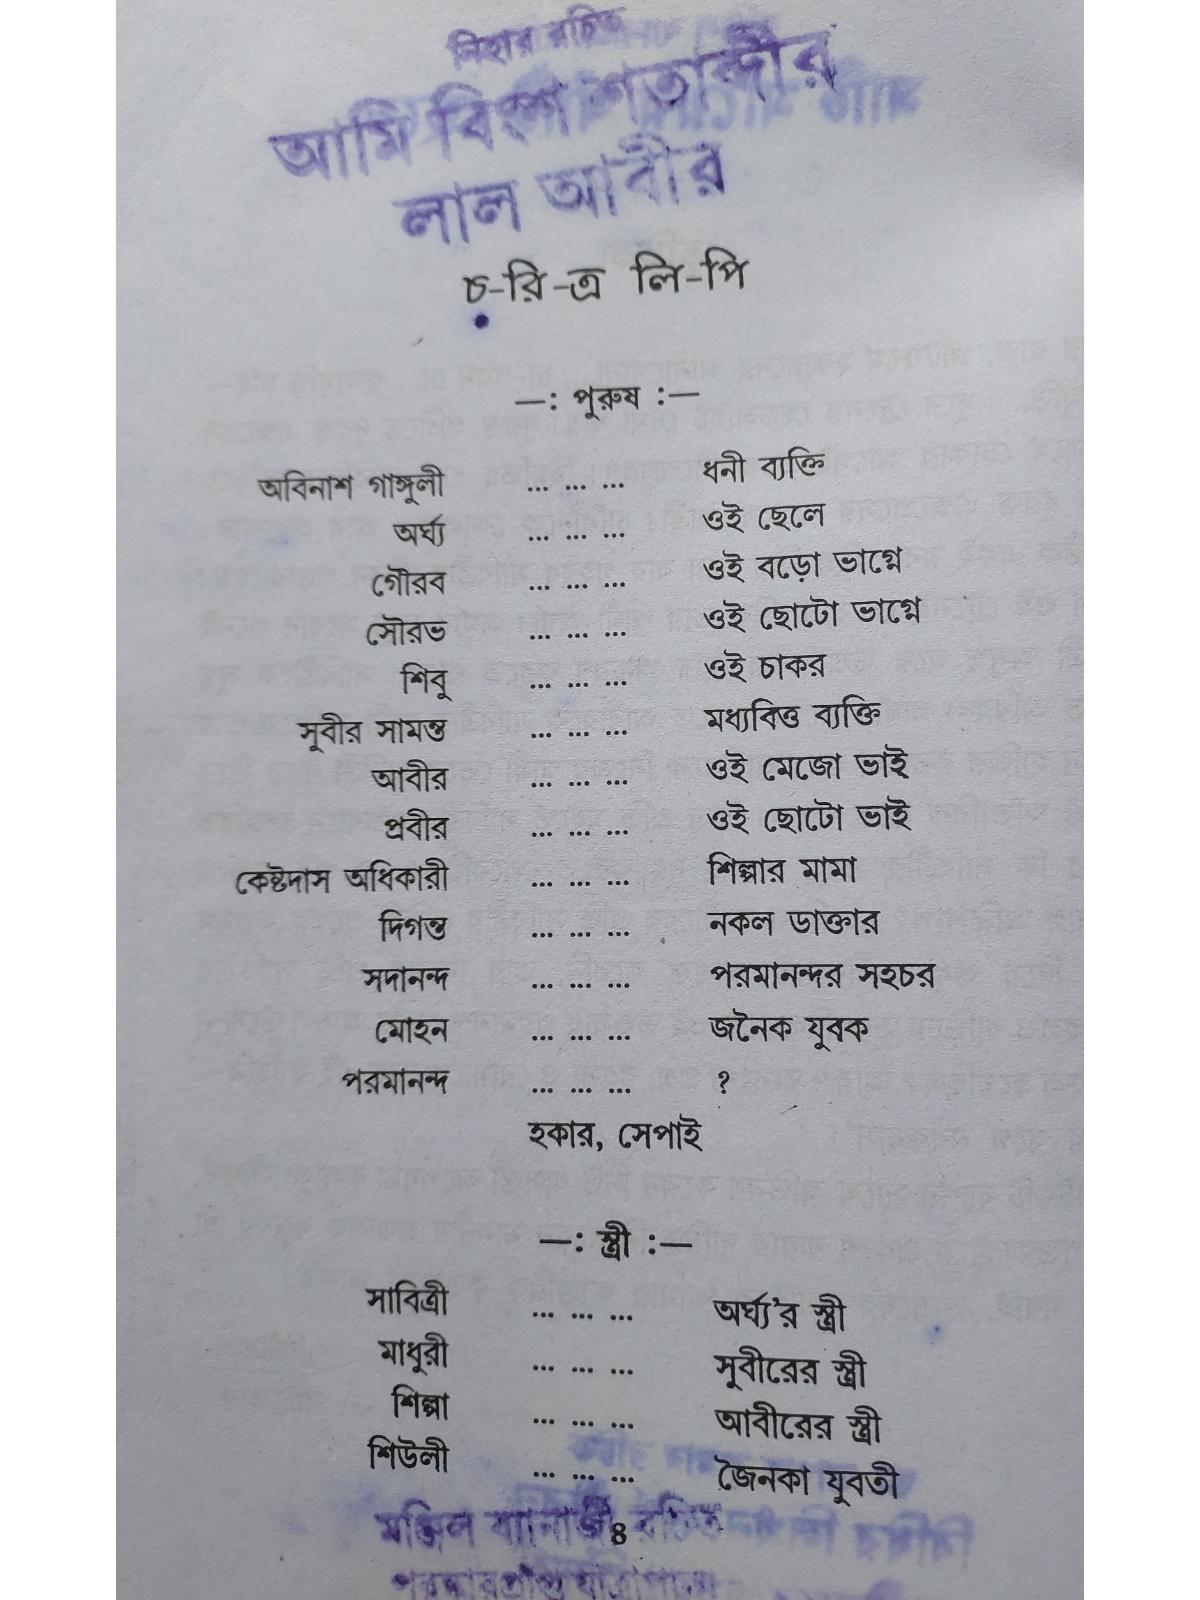 নিহার রচিত
আমি বিংশ শতাব্দীর
লাল আবীর
চ-রি-ত্র লি-পি
—: পুরুষ :—
অবিনাশ গাঙ্গুলী ... ... ... ধনী ব্যক্তি
অর্ঘ্য ... ... ... ওই ছেলে
গৌরব ... ... ... ওই বড়ো ভাগ্নে
সৌরভ ... ... ... ওই ছোটো ভাগ্নে
শিবু ... ... ... ওই চাকর
সুবীর সামন্ত ... ... ... মধ্যবিত্ত ব্যক্তি
আবীর ... ... ... ওই মেজো ভাই
প্রবীর ... ... ... ওই ছোটো ভাই
কেষ্টদাস অধিকারী ... ... ... শিল্পার মামা
দিগন্ত ... ... ... নকল ডাক্তার
সদানন্দ ... ... ... পরমানন্দর সহচর
মোহন ... ... ... জনৈক যুবক
পরমানন্দ ... ... ... ?
হকার, সেপাই
—: স্ত্রী :—
সাবিত্রী ... ... ... অর্ঘ্য'র স্ত্রী
মাধুরী ... ... ... সুবীরের স্ত্রী
শিল্পা ... ... ... আবীরের স্ত্রী
শিউলী ... ... ... জৈনকা যুবতী
মঞ্জিল ব্যানার্জী রচিত
৪